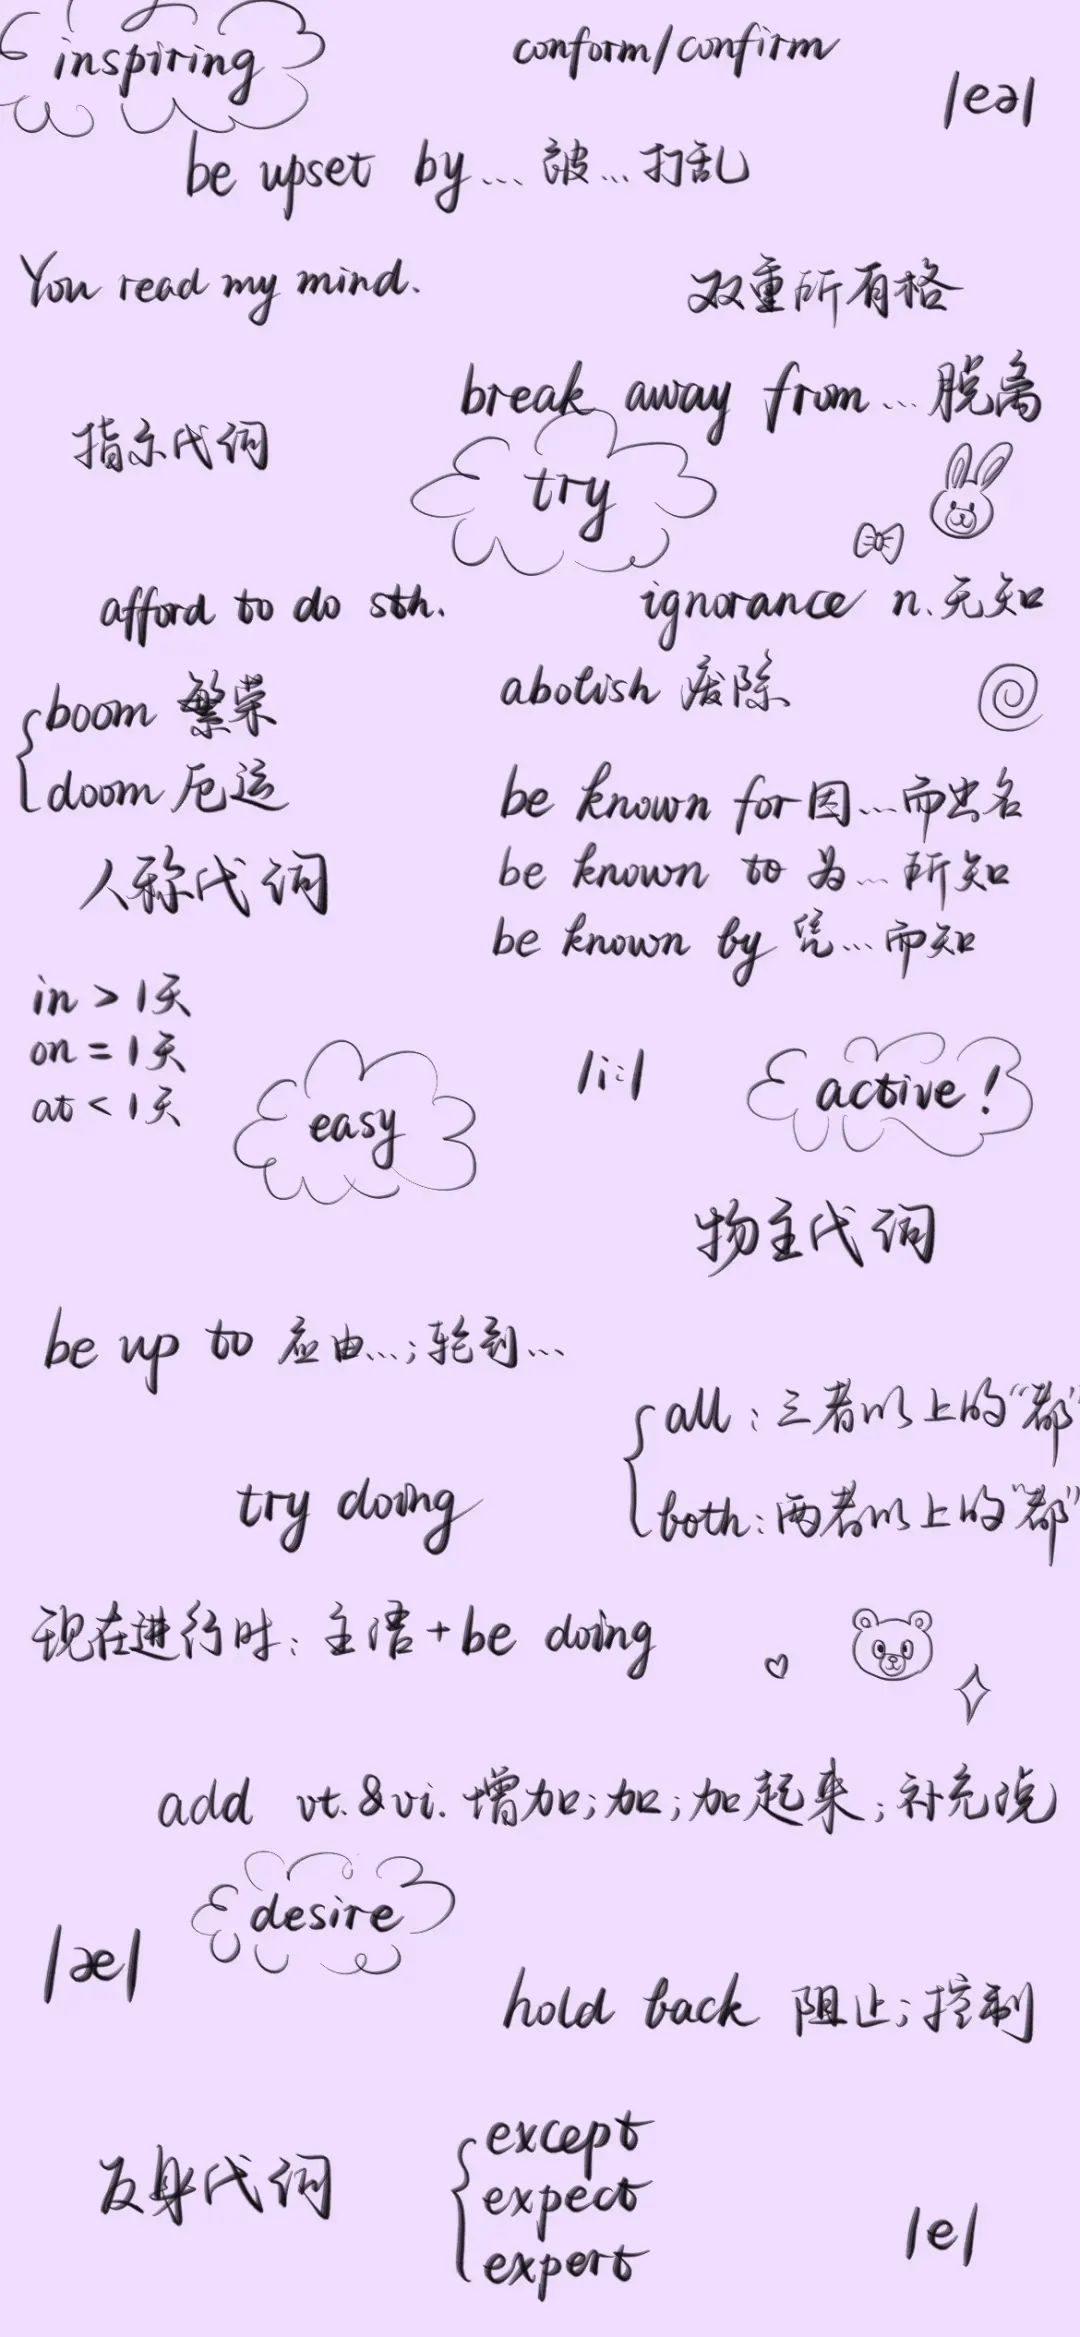 inspiring
conform/confirm
/eə/
be upset by... 被...打乱
You read my mind.
双重所有格
break away from... 脱离
指示代词
try
afford to do sth.
ignorance n.无知
boom 繁荣
abolish 废除
doom 厄运
be known for 因...而出名
人称代词
be known to 为...所知
be known by 凭...而知
in > 1天
on = 1天
at < 1天
easy
/i:/
active!
物主代词
be up to 应由...;轮到...
all:三者以上的“都”
try doing
both:两者以上的“都”
现在进行时:主语+be doing
add vt.&vi.增加;加;加起来;补充说
desire
/æ/
hold back 阻止;控制
反身代词
except
expect
expert
/e/